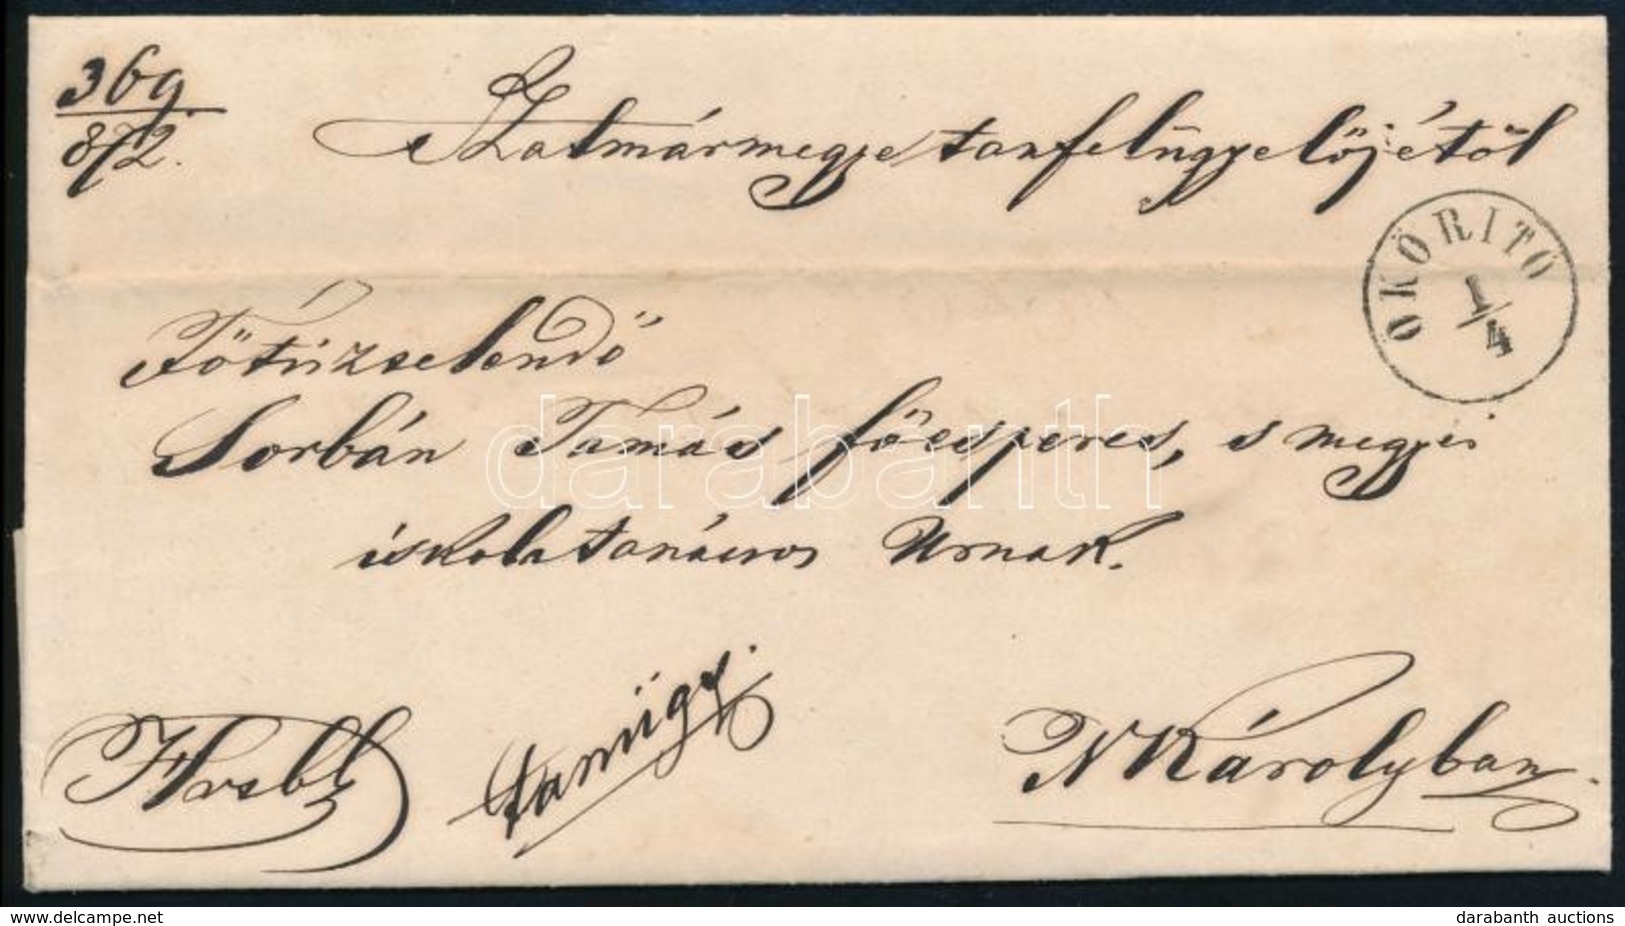 369.
872.
Szatmármegye tanfelügyelőjétől
ÖKÖRITÓ
1/4
Főtiszelendő
Sorbán Tamás főesperes, s megyei
iskolatanácsos Urnak.
tanügy.
NKárolyban.
darabanth
www.delcampe.net
darabanth auctions